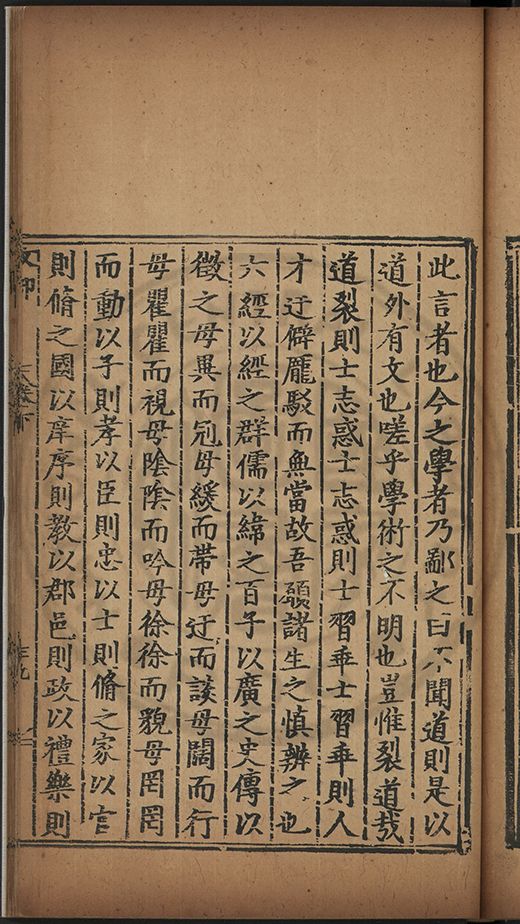 此言者也今之學者乃鄙之曰不聞道則是以
道外有文也嗟乎學術之不明也豈惟裂道㢤
道裂則士志惑士志惑則士習乖士習乖則人
才迂僻龐駁而無當故吾願諸生之慎辨之也
六經以經之群儒以緯之百子以廣之史傳以
徵之毋異而冠毋緩而帶毋迂而談毋闊而行
毋瞿瞿而視毋陰陰而吟毋徐徐而貌毋罔罔
而動以子則孝以臣則忠以士則脩之家以官
則脩之國以庠序則教以郡邑則政以禮樂則